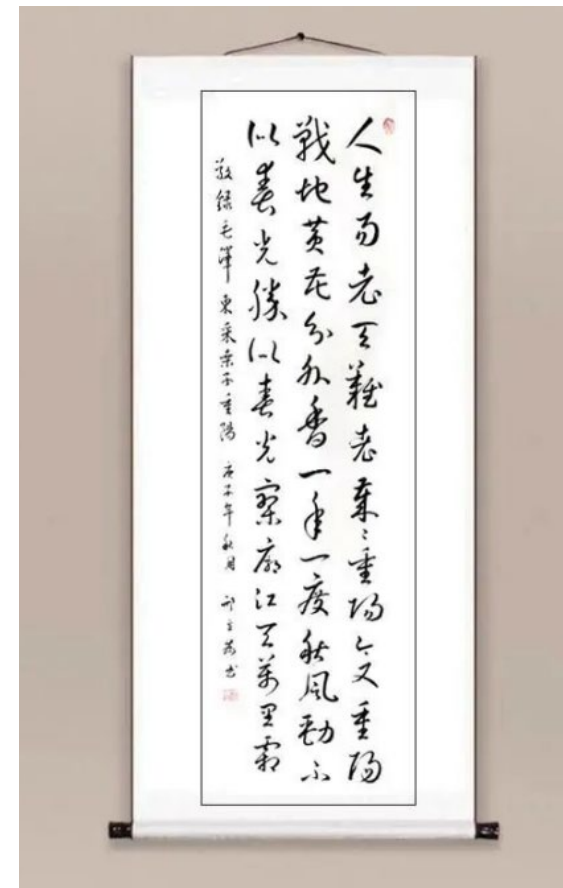 人生易老天難老歲〻重陽今又重陽
戰地黃花分外香一年一度秋風勁不
似春光勝似春光寥廓江天萬里霜
敬錄毛澤東采桑子重陽 庚子年秋月 書